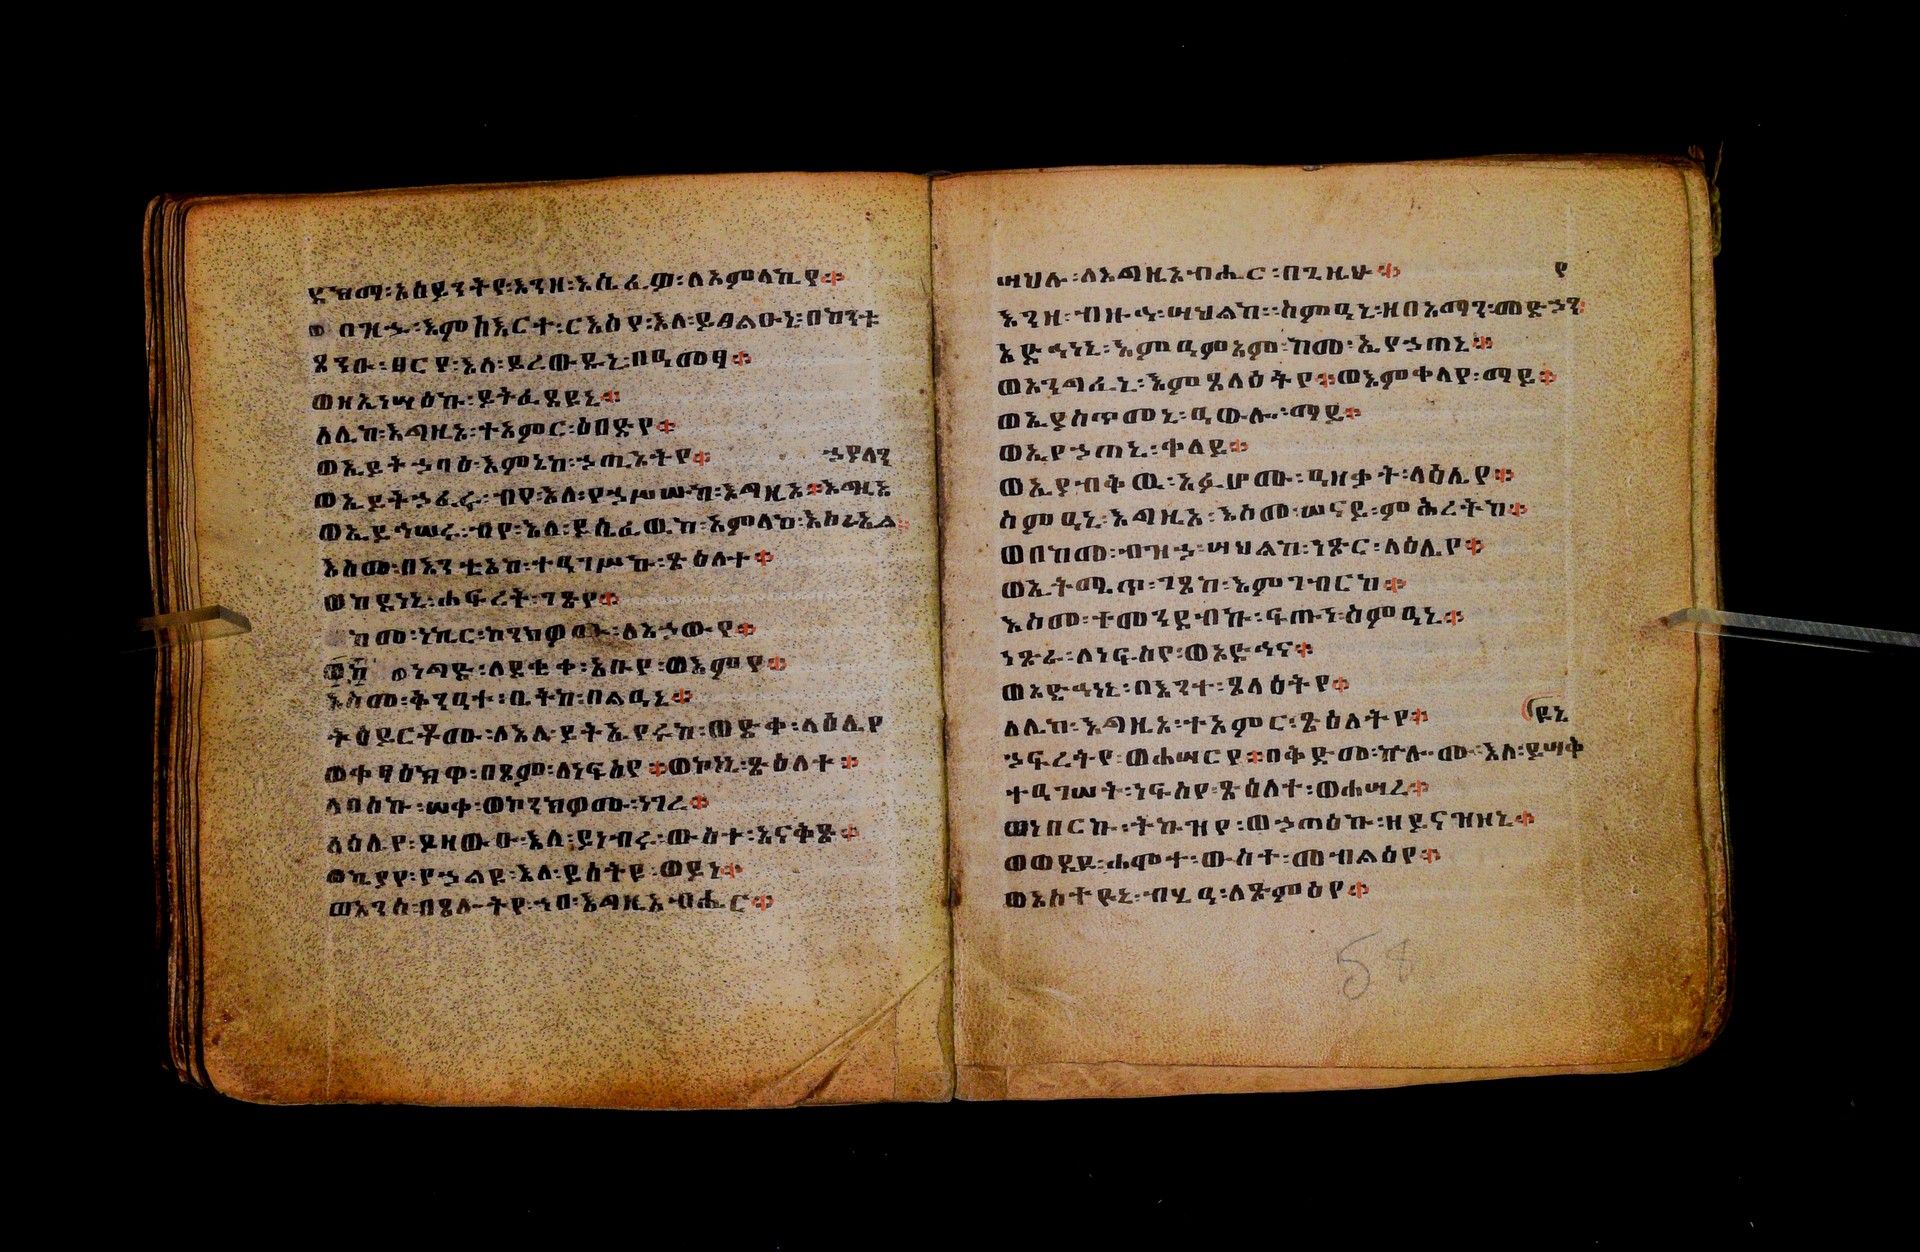 ደኽማ፡አዕይንትየ፡እንዘ፡እሴፈዎ፡ለአምላኪየ።
በዝኁ፡እምስእርተ፡ርእስየ፡እለ፡ይፃልዑኒ፡በከንቱ
ጸንዑ፡ፀርየ፡እለ፡ይረውዱኒ፡በዓመፃ።
ወዘኢነሣዕኩ፡ይትፈደዩኒ።
ለሊከ፡እግዚኦ፡ተአምር፡ዕበድየ።
ወኢይትኃባዕ፡እምኔከ፡ኃጢአትየ። ኃያላን
ወኢይትኃፈሩ፡ብየ፡እለ፡የኃሥሡከ፡እግዚኦ።እግዚአ
ወኢይኀሠሩ፡ብየ፡እለ፡ይሴፈዉከ፡አምላከ፡እስራኤል።
እስመ፡በእንቲአከ፡ተዓገሥኩ፡ጽዕለተ።
ወከደነኒ፡ሐፍረት፡ገጽየ።
ከመ፡ነኪር፡ኮንክዎሙ፡ለአኃውየ።
ወነግድ፡ለደቂቀ፡እቡየ፡ወእምየ።
እስመ፡ቅንዓተ፡ቤትከ፡በልዓኒ።
ትዕይርቶሙ፡ለእለ፡ይትኤየሩከ፡ወድቀ፡ላዕሌየ
ወቀፃዕክዋ፡በጾም፡ለነፍስየ።ወኮነኒ፡ጽዕለተ።
ለበስኩ፡ሠቀ፡ወኮንክዎሙ፡ነገረ።
ላዕሌየ፡ይዘውዑ፡እለ፡ይነብሩ፡ውስተ፡አናቅጽ።
ወኪያየ፡የኃልዩ፡እለ፡ይሰትዩ፡ወይነ።
ወአንሰ፡በጸሎትየ፡ኀበ፡እግዚአብሔር።
ሣህሉ፡ለእግዚአብሔር፡በጊዜሁ። የ
እንዘ፡ብዙኅ፡ሣህልከ፡ስምዓኒ፡ዘበአማን፡መድኃን፡
አድኅነኒ፡እምዓምዓም፡ከመ፡ኢየኃጠኒ።
ወአንግፈኒ፡እምጸላዕትየ።ወእምቀላየ፡ማይ።
ወኢያስጥመኒ፡ዓውሎ፡ማይ።
ወኢየኃጠኒ፡ቀላይ።
ወኢያብቅዉ፡አፉሆሙ፡ዓዘቃት፡ላዕሌየ።
ስምዓኒ፡እግዚኦ፡እስመ፡ሠናይ፡ምሕረትከ።
ወበከመ፡ብዝኃ፡ሣህልከ፡ነጽር፡ላዕሌየ።
ወኢትሚጥ፡ገጸከ፡እምገብርከ።
እስመ፡ተመንደብኩ፡ፍጡነ፡ስምዓኒ።
ነጽራ፡ለነፍስየ፡ወአድኅና።
ወአድኅነኒ፡በእንተ፡ጸላዕትየ።
ለሊከ፡እግዚኦ፡ተአምር፡ጽዕለትየ። ዩኒ
ኃፍረትየ፡ወሐሣርየ።በቅድመ፡ኵሎሙ፡እለ፡ይሣቅ
ተዓገሠት፡ነፍስየ፡ጽዕለተ፡ወሐሣረ።
ወነበርኩ፡ትኩዝየ፡ወኃጣዕኩ፡ዘይናዝዘኒ።
ወወደዩ፡ሐሞተ፡ውስተ፡መብልዕየ።
ወአስተዩኒ፡ብሂዓ፡ለጽምዕየ።
58